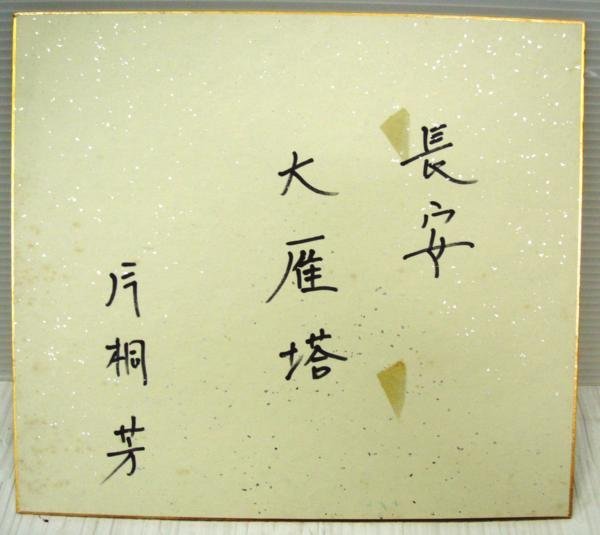 長安
大雁塔
片桐芳